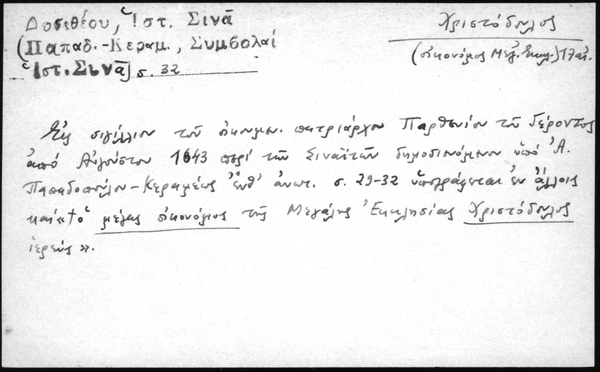 Δοσιθέου, Ἱστ. Σινᾶ
(Παπαδ.-Κεραμ., Συμβολαί
Ἱστ. Σινᾶ) σ. 32
Χριστόδουλος
(οἰκονόμος Μεγ. Ἐκκλ.) 17 αἰ.
Εἰς σιγίλλιον τοῦ οἰκουμ. πατριάρχου Παρθενίου τοῦ Γέροντος
ἀπό Αὐγούστου 1643 περί τῶν Σιναϊτῶν δημοσιευόμενον ὑπό Ἀ.
Παπαδοπούλου-Κεραμέως ἔνθ' ἀνωτ. σ. 29-32 ὑπογράφεται ἐν ἄλλοις
καί «† ὁ μέγας οἰκονόμος τῆς Μεγάλης Ἐκκλησίας Χριστόδουλος
ἱερεύς».